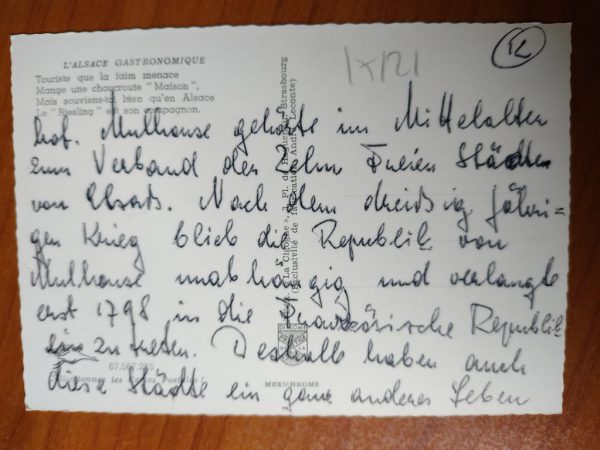 12
17/21
L'ALSACE GASTRONOMIQUE
Touriste que la faim menace
Mange une choucroute "Maison",
Mais souviens-toi bien qu'en Alsace
Le "Riesling" est son compagnon.
hof. Mulhouse gehörte im Mittelalter
zum Verband der Zehn Freien Städten
von Elsass. Nach dem dreissig jähri-
gen Krieg blieb die Republik von
Mulhouse unabhängig und verlangte
erst 1798 in die Französische Republik
ein zu treten. Deshalb haben auch
diese Städte ein ganz anderes Leben
"La Cigogne", Strasbourg
(Exclusivité de André Leconte)
67.567.265
MEXICHROME